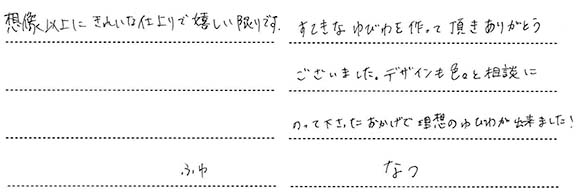 想像以上にきれいな仕上りで嬉しい限りです。
ふゆ
すてきなゆびわを作って頂きありがとう
ございました。デザインも色々と相談に
のって下さったおかげで理想のゆびわが出来ました!
なつ